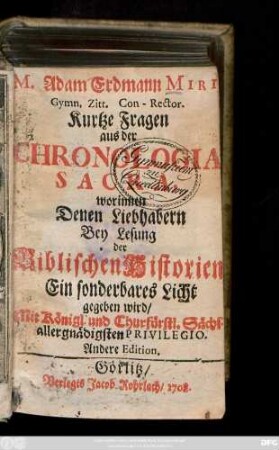 M. Adam Erdmann MIRI
Gymn. Zitt. Con-Rector.
Kurtze Fragen
aus der
CHRONOLOGIA
SACRA,
worinnen
Denen Liebhabern
Bey Lesung
der
Biblischen Historien
Ein sonderbares Licht
gegeben wird/
Mit Königl. und Churfürstl. Sächs.
allergnädigsten PRIVILEGIO.
Andere Edition.
Görlitz/
Verlegts Jacob Rohrlach/ 1708.